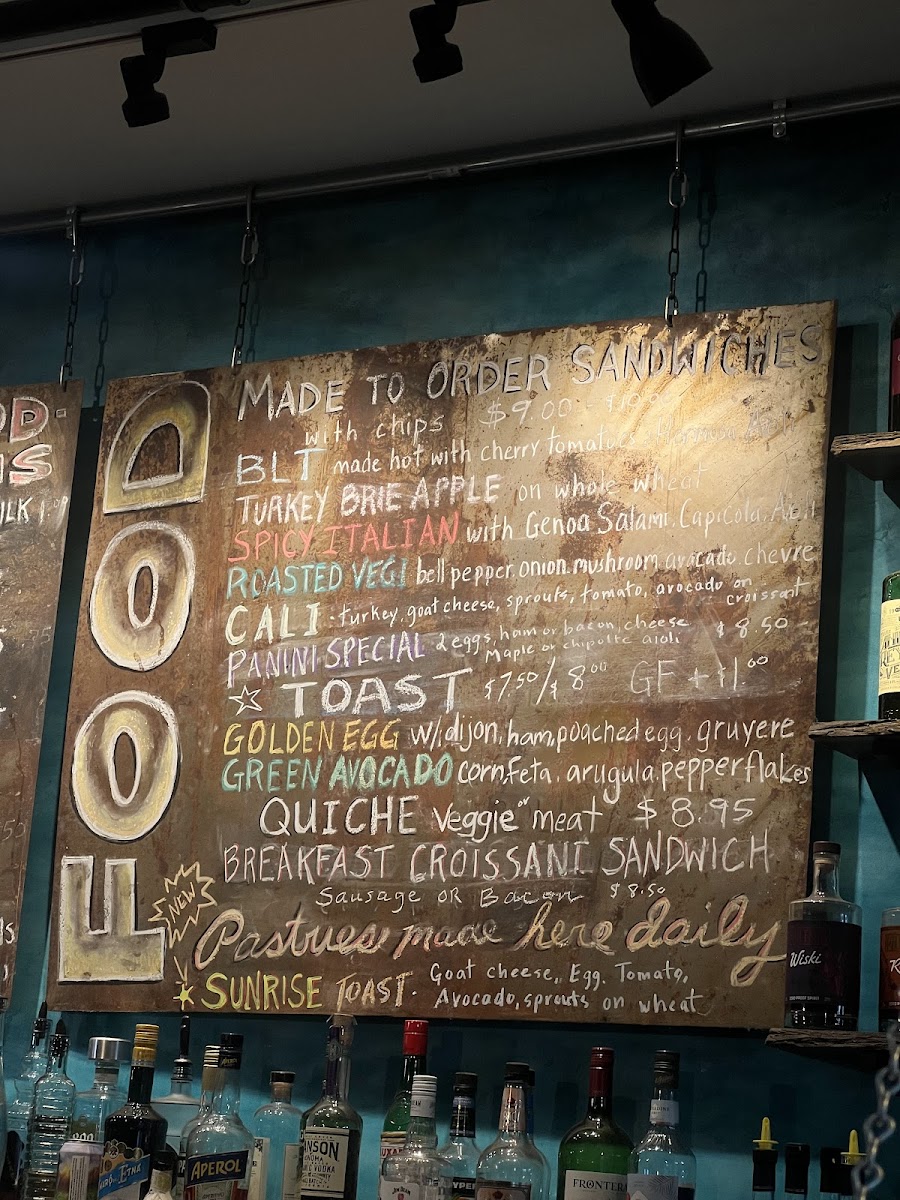 FOOD
MADE TO ORDER SANDWICHES
with chips $9.00
BLT made hot with cherry tomatoes
TURKEY BRIE APPLE on whole wheat
SPICY ITALIAN with Genoa Salami, Capicola,
ROASTED VEGI bell pepper. onion. mushroom. avocado. chevre
CALI - turkey, goat cheese, sprouts, tomato, avocado on
croissant
PANINI SPECIAL 2 eggs, ham or bacon, cheese $8.50
Maple or chipotle aioli
TOAST $7.50/$8.00 GF + $1.00
GOLDEN EGG w/ dijon, ham, poached egg, gruyere
GREEN AVOCADO corn, feta, arugula, pepperflakes
QUICHE Veggie or meat $8.95
BREAKFAST CROISSANT SANDWICH
Sausage OR Bacon $8.50
NEW
Pastries made here daily
SUNRISE TOAST. Goat cheese, Egg, Tomato,
Avocado, sprouts on wheat
Wiski
APEROL
FRONTERA